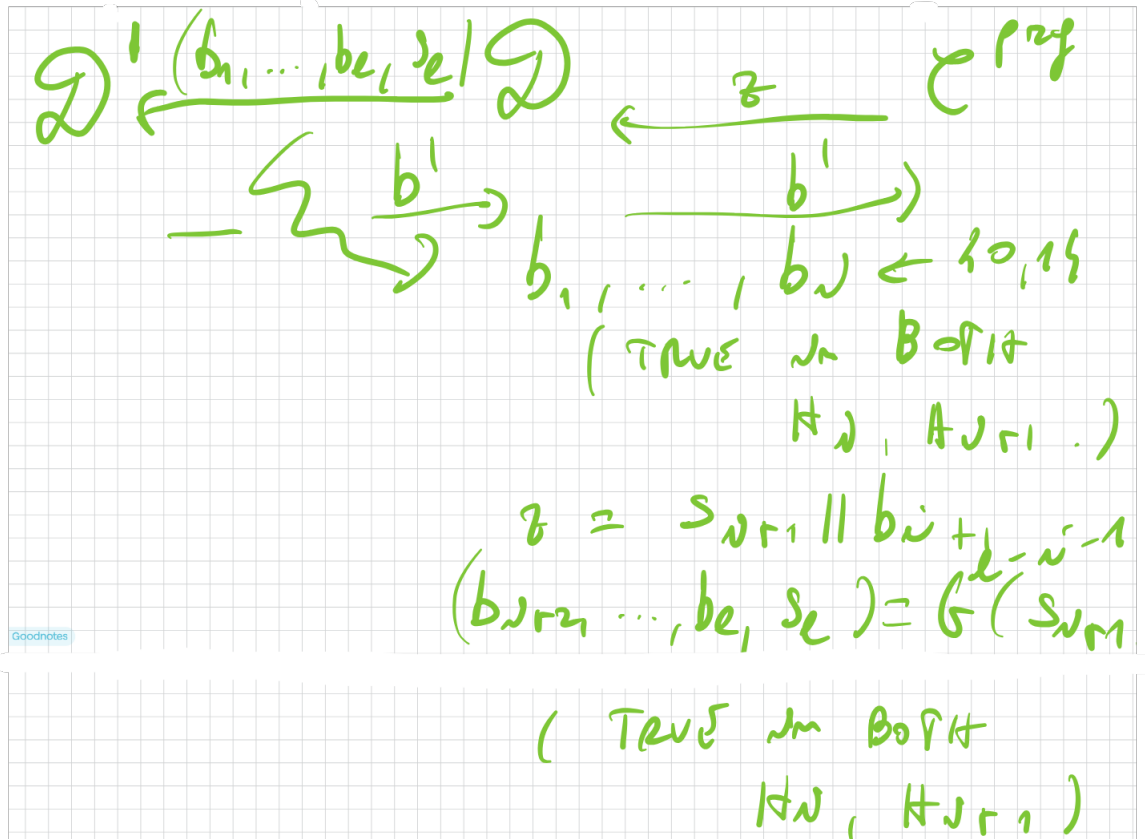 D' (b1, ..., bℓ, sℓ) D z C prg
b' b'
b1, ..., bi ← {0,1}
(TRUE in BOTH
Hi, Hi+1.)
z = si+1 || bi+1
(bi+2, ..., bℓ, sℓ) = G^ℓ-i-1 (si+1
Goodnotes
(TRUE in BOTH
Hi, Hi+1)